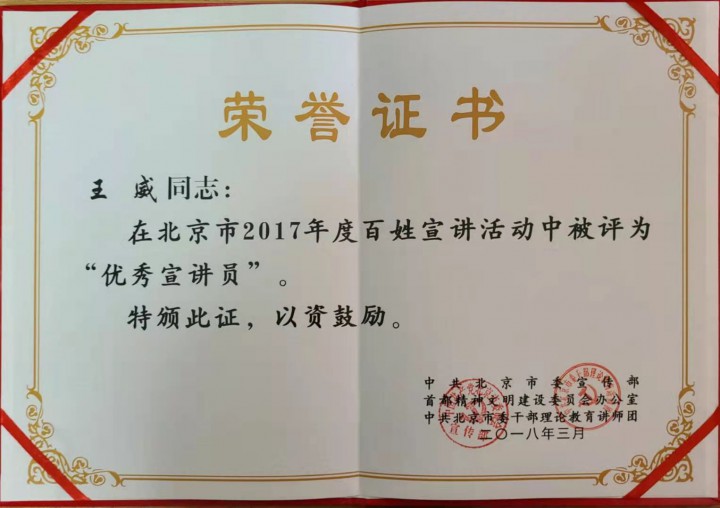 荣誉证书
王 威 同志：
在北京市2017年度百姓宣讲活动中被评为
“优秀宣讲员”。
特颁此证，以资鼓励。
中共北京市委宣传部
首都精神文明建设委员会办公室
中共北京市委干部理论教育讲师团
二〇一八年三月
宣传部